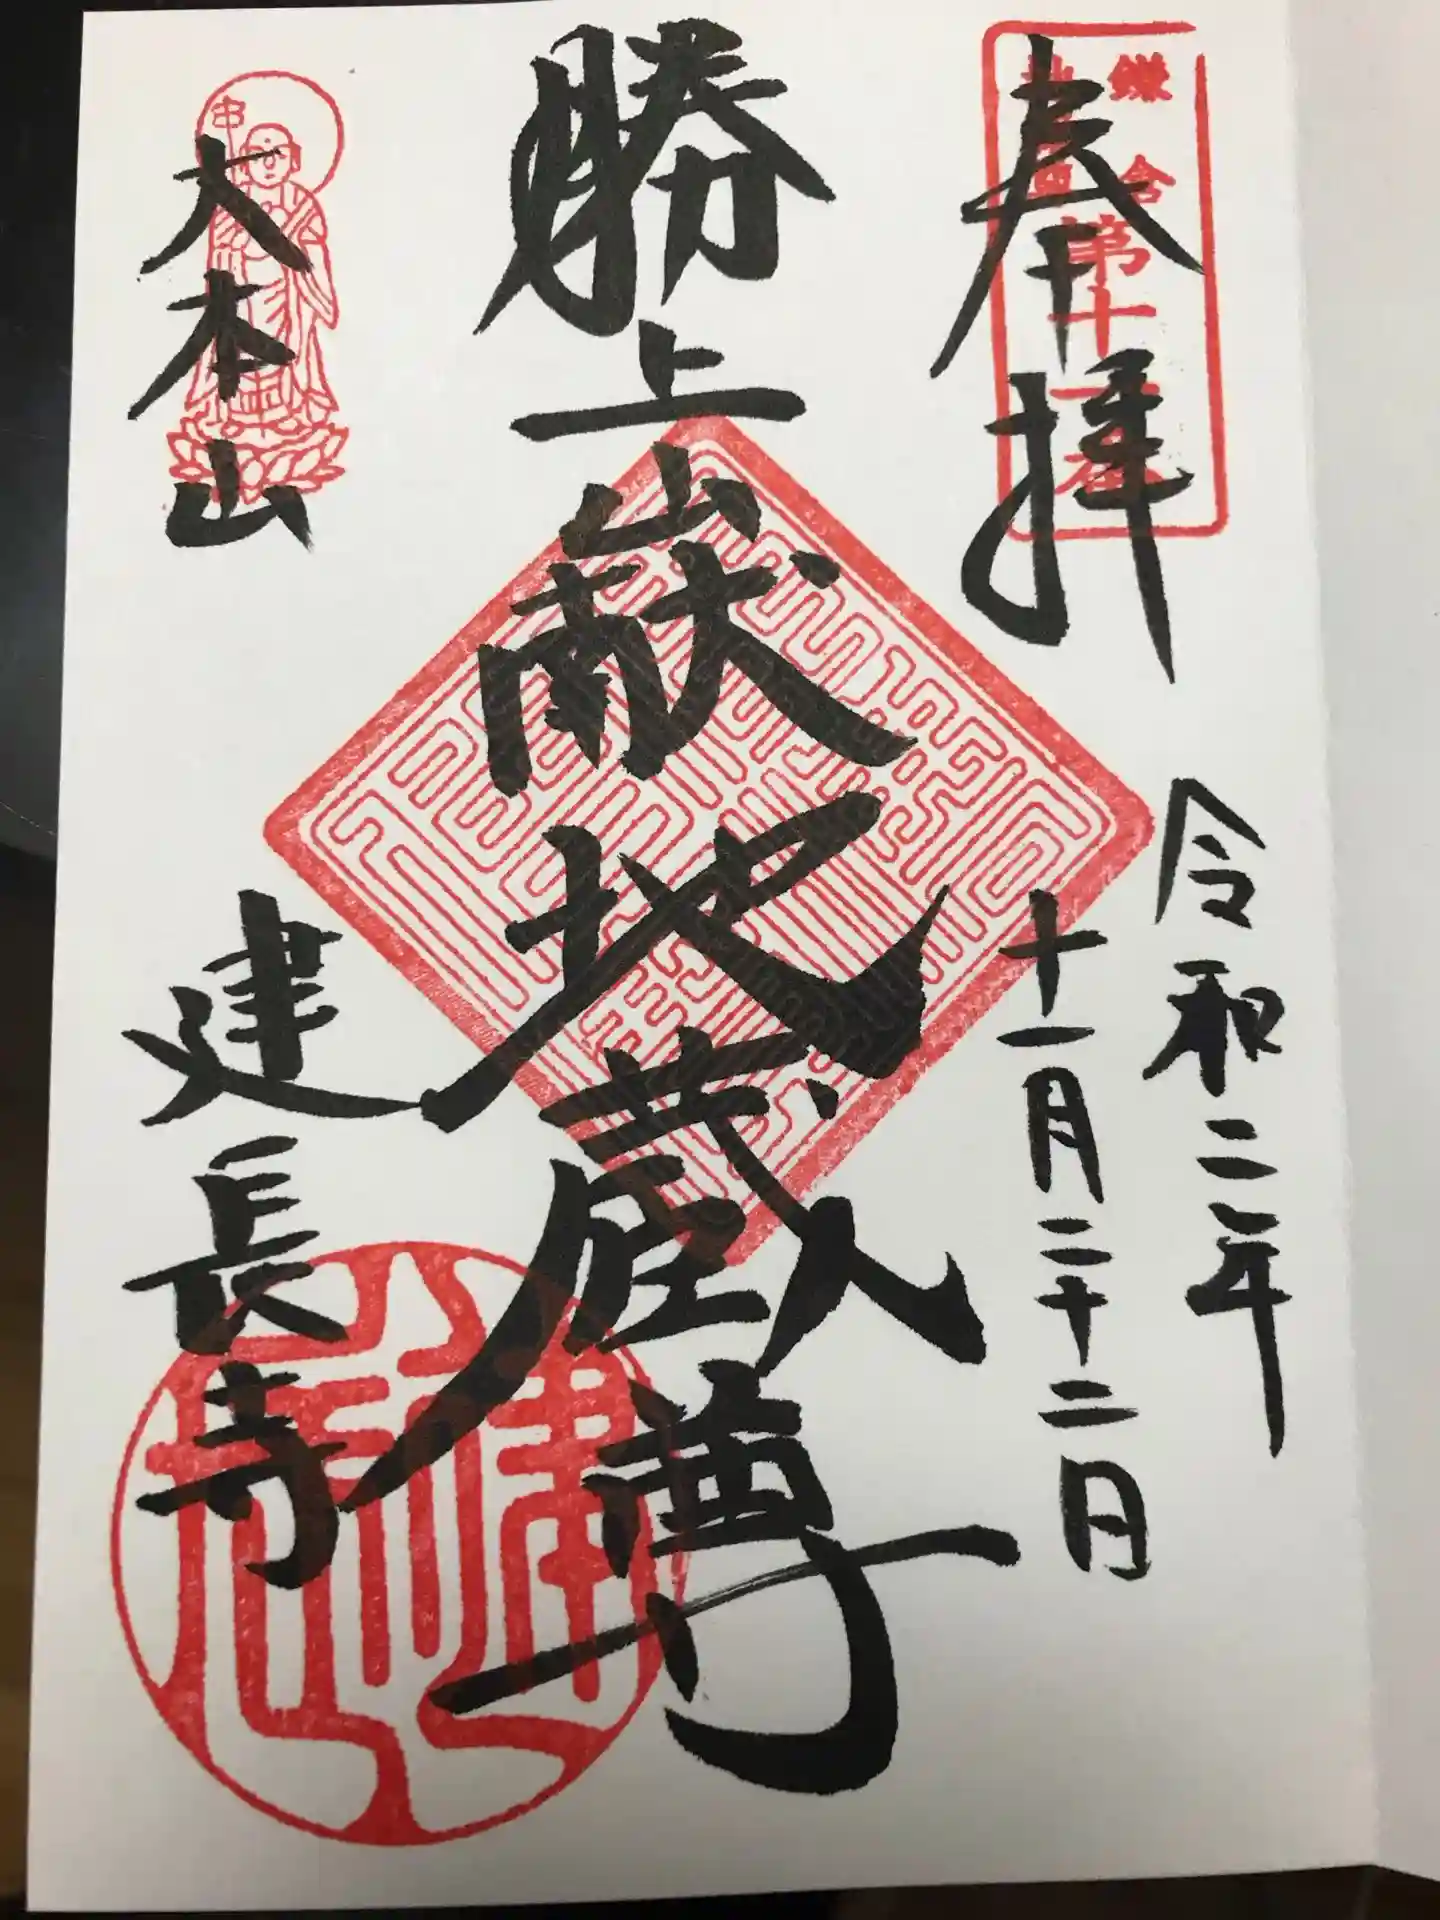 奉拝
鎌倉
第十一番
令和二年
十一月二十二日
勝上献地蔵尊
大本山
建長寺